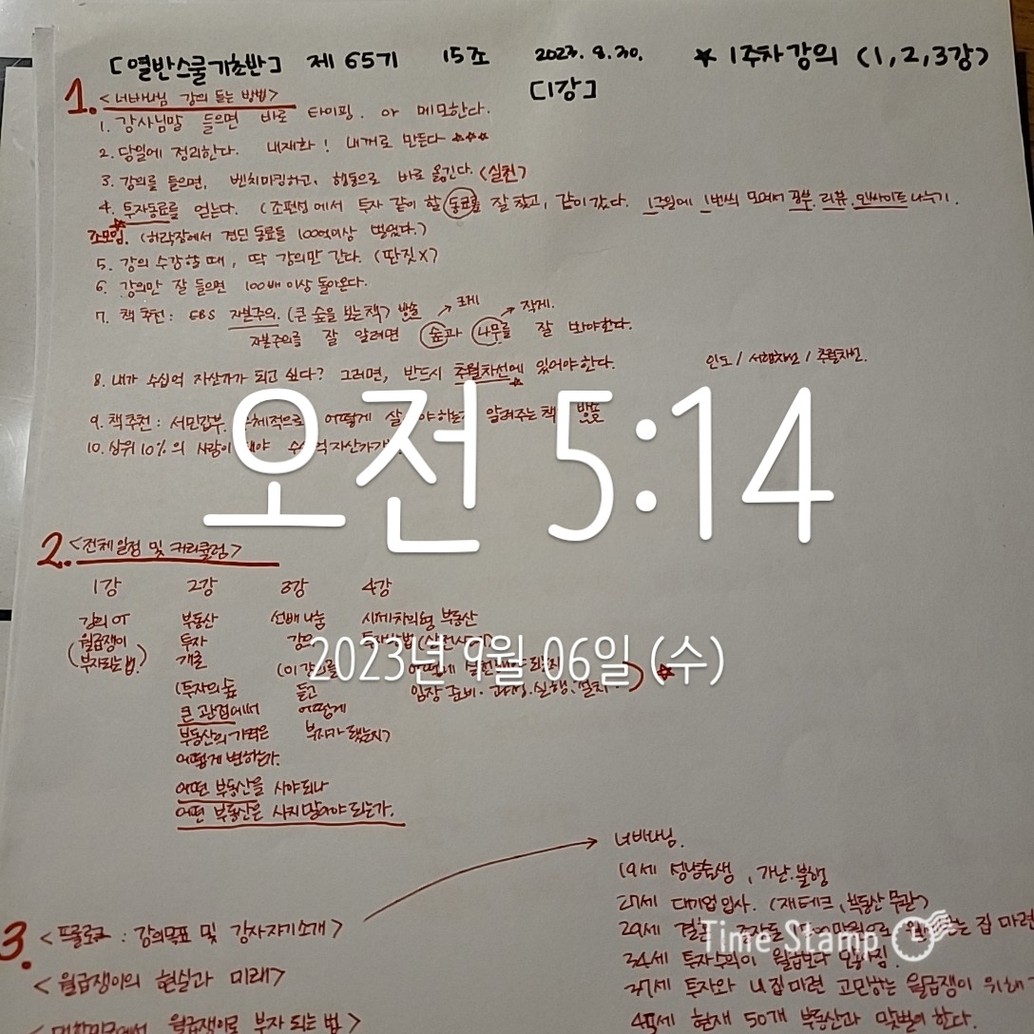 [열반스쿨기초반] 제 65기 15조 2023. 8. 30. ★ 1주차강의 (1, 2, 3강)
[1강]
1. <너바나님 강의 듣는 방법>
1. 강사님말 들으면 바로 타이핑. or 메모한다.
2. 당일에 정리한다. 내재화! 내꺼로 만든다 ☆☆☆
3. 강의를 들으면, 벤치마킹하고, 행동으로 바로 옮긴다. (실천)
4. 투자동료를 얻는다. (조편성에서 투자 같이 할 동료를 잘 찾고, 같이 간다. 1주일에 1번씩 모여서 공부. 리뷰. 인싸이트 나누기.
조모임. (하락장에서 견딘 동료들 100억이상 벌었다.)
5. 강의 수강할 때, 딱 강의만 간다. (딴짓X)
6. 강의만 잘 들으면 100배 이상 돌아온다.
7. 책 추천: EBS 자본주의. (큰 숲을 보는 책) 크게 작게.
자본주의를 잘 알려면 숲과 나무를 잘 봐야한다.
8. 내가 수십억 자산가가 되고 싶다? 그러면, 반드시 추월차선에 있어야 한다. 인도 / 서행차선 / 추월차선.
9. 책 추천: 서민갑부. 어떻게 알려주는 책
10. 상위 10%의 사람이
오전 5:14
2023년 9월 06일 (수)
2. <전체일정 및 커리큘럼>
1강 2강 3강 4강
강의 OT 부동산 선배 나눔 부동산
(월급쟁이 투자
부자되는 법.) 개론 (이 강의를
(투자의 숲 듣고 임장 준비.
큰 관점에서 어떻게
부동산의 가격은 부자가 됐는지)
어떻게 변하는가.
어떤 부동산을 사야되나
어떤 부동산은 사지 말아야 되는가.
3. <프롤로그: 강의목표 및 강사자기소개>
<월급쟁이의 현실과 미래>
<대한민국에서 월급쟁이로 부자 되는 법>
너바나님.
19세 성남출생, 가난. 불행
27세 대기업 입사. (재테크, 부동산 무관)
29세 집 마련
34세 투자수익이 월급보다 많아짐.
37세 투자와 내집마련 고민하는 월급쟁이 위해
현재 50개 부동산과 맞벌이 한다.
Time Stamp